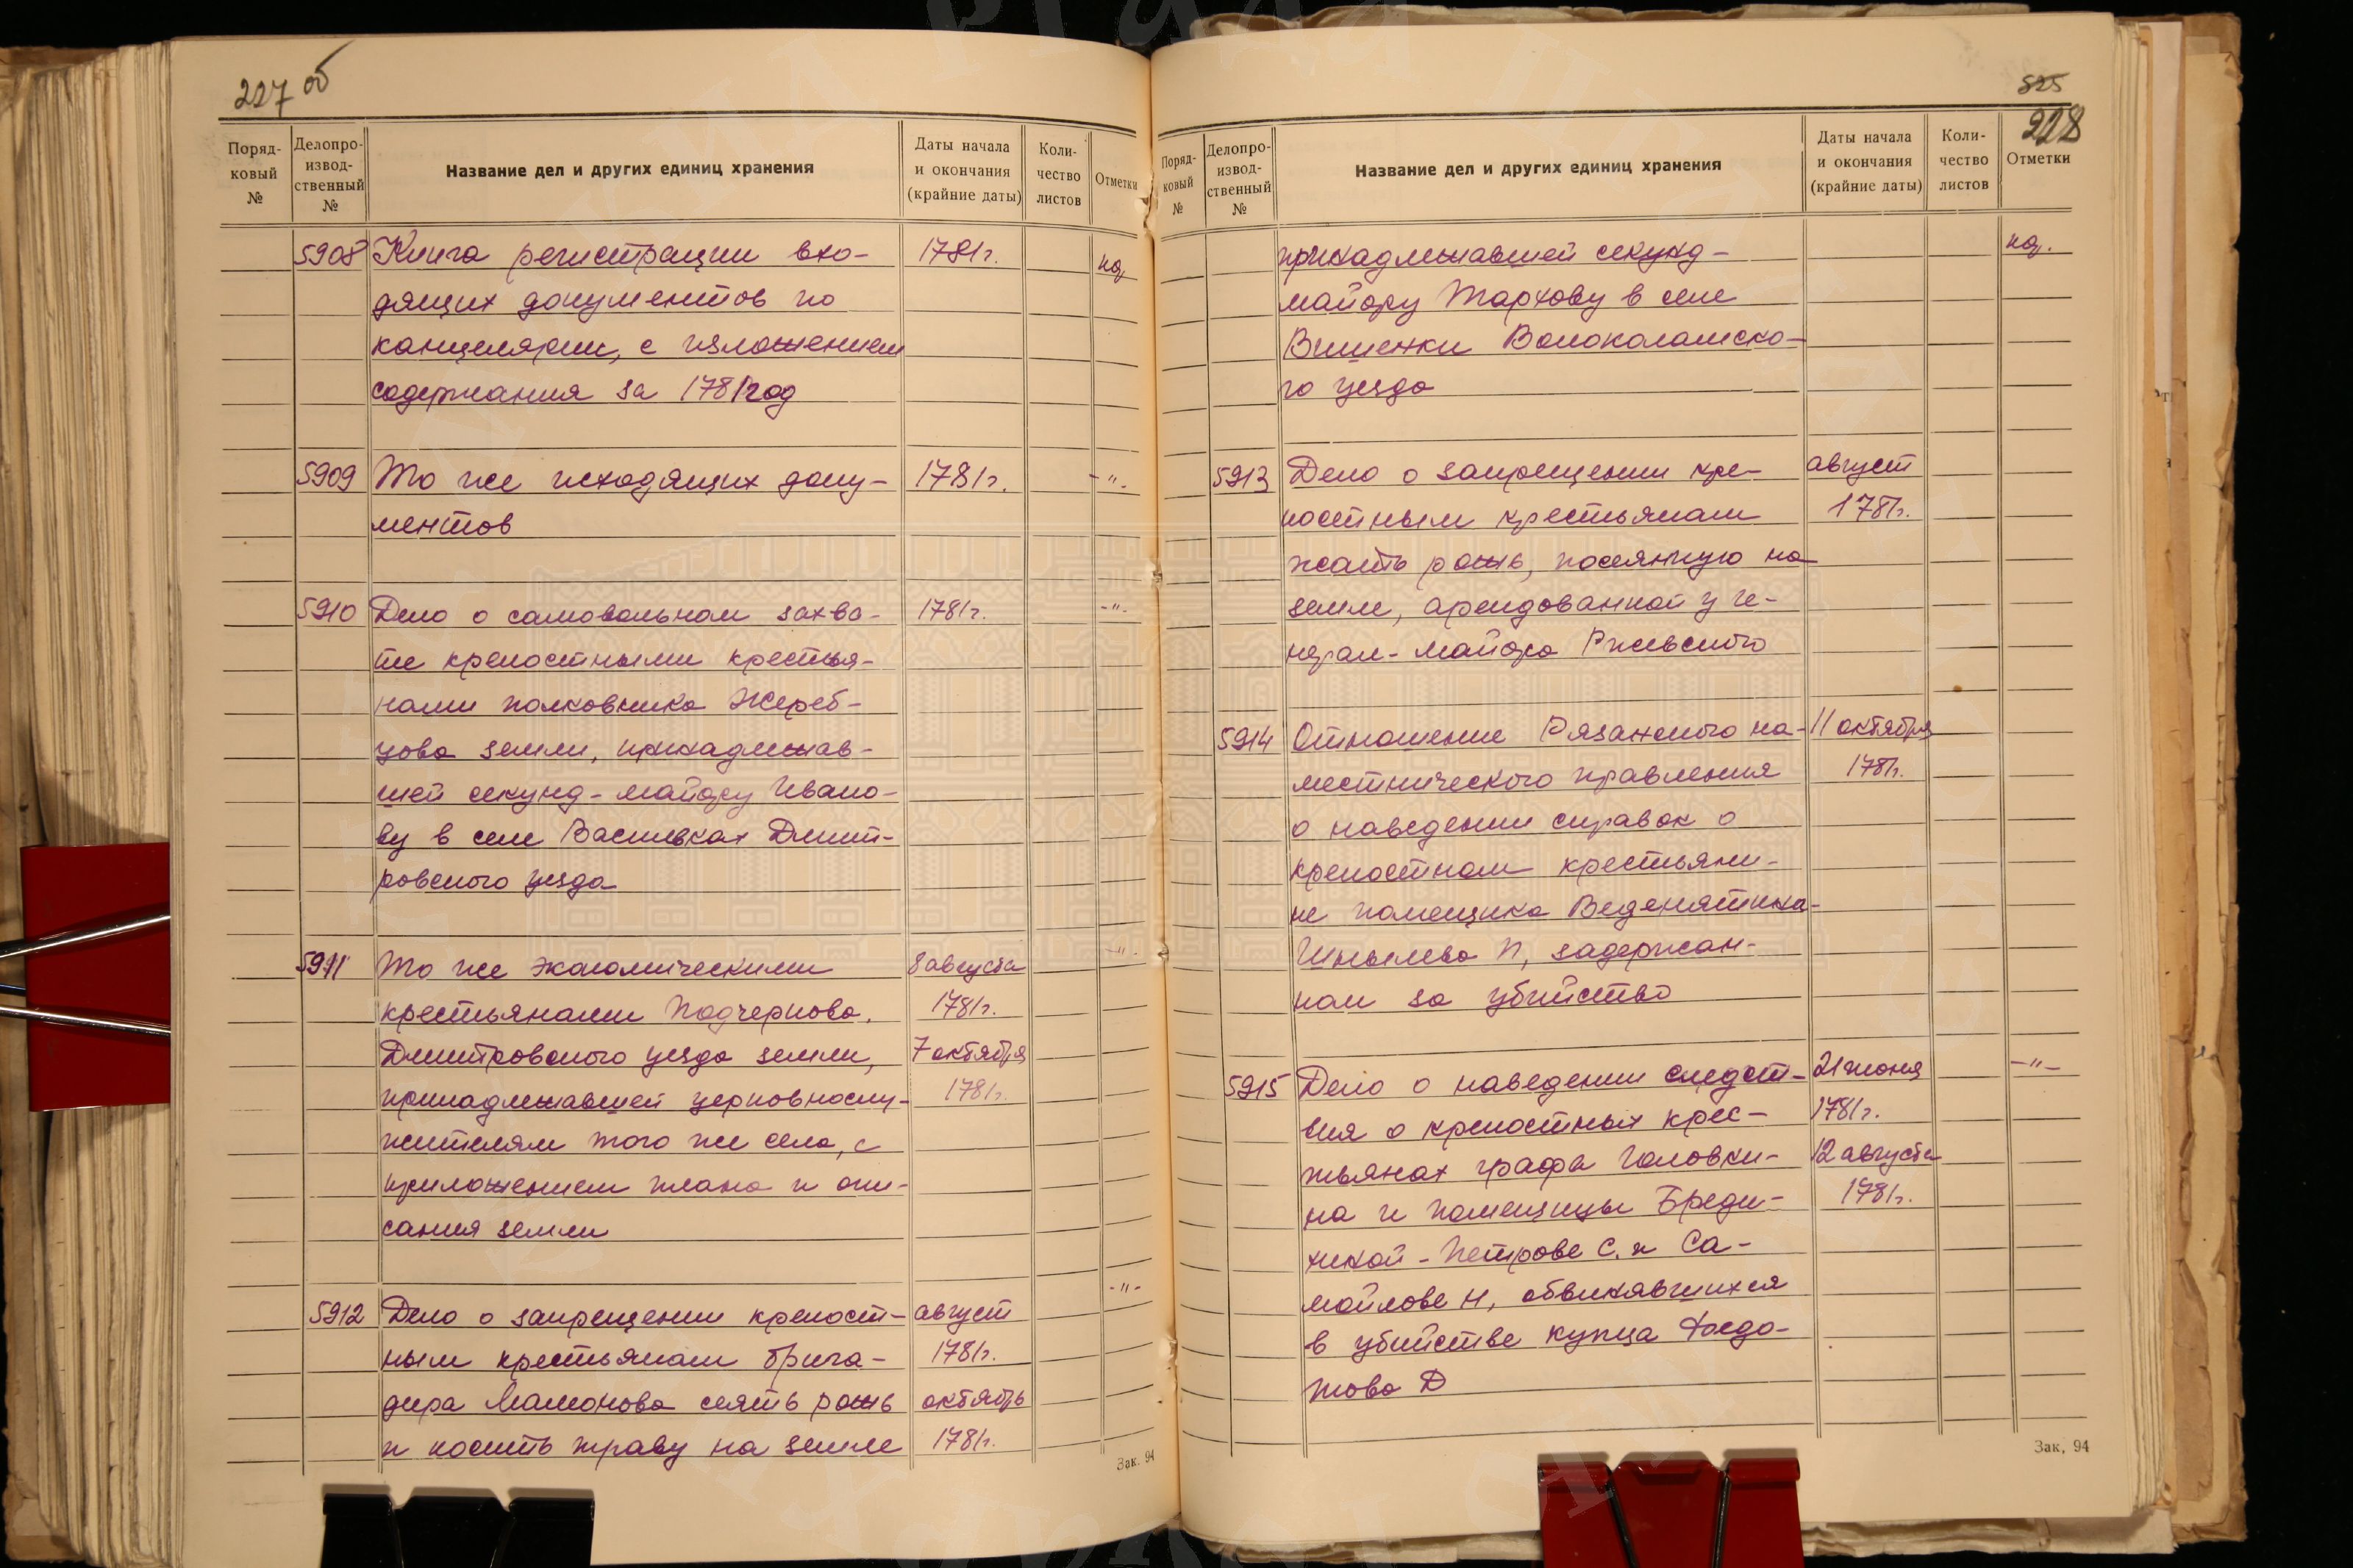 227 об
Поряд-
ковый
№
Делопро-
извод-
ственный
№
Название дел и других единиц хранения
Даты начала
и окончания
(крайние даты)
Коли-
чество
листов
Отметки
5908 Книга регистрации вхо- 1781г. нд
дящих документов по
канцелярии, с изложением
содержания за 1781 год
5909 То же исходящих доку- 1781г. -"-
ментов
5910 Дело о самовольном захва- 1781г. -"-
те крепостными крестья-
нами полковника Жереб-
цова земли, принадлежав-
шей секунд-майору Ивано-
ву в селе Васильках Дмит-
ровского уезда
5911 То же экономическими 8 августа -"-
крестьянами Подчерково, 1781г.
Дмитровского уезда земли, 7 октября
принадлежавшей церковнослу- 1781г.
жителям того же села, с
приложением плана и опи-
сания земли
-"-
5912 Дело о запрещении крепост- август
ным крестьянам брига- 1781г.
дира Мамонова сеять рожь октябрь
и косить траву на земле 1781г.
Зак. 94
525
228
Поряд-
ковый
№
Делопро-
извод-
ственный
№
Название дел и других единиц хранения
Даты начала
и окончания
(крайние даты)
Коли-
чество
листов
Отметки
принадлежавшей секунд- нд.
майору Тархову в селе
Вишенки Волоколамско-
го уезда
5913 Дело о запрещении кре- август
постным крестьянам 1781г.
жать рожь, посеянную на
земле, арендованной у ге-
нерал-майора Ржевского
5914 Отношение Рязанского на- 11 октября
местнического правления 1781г.
о наведении справок о
крепостном крестьяни-
не помещика Веденяпина-
Шмылева П, задержан-
ном за убийство
5915 Дело о наведении следст- 21 июня -"-
вия о крепостных крес- 1781г.
тьянах графа Головки- 12 августа
на и помещицы Бреди- 1781г.
хиной - Петрове С. и Са-
мойлове Н, обвинявшихся
в убийстве купца Федо-
това Д
Зак, 94